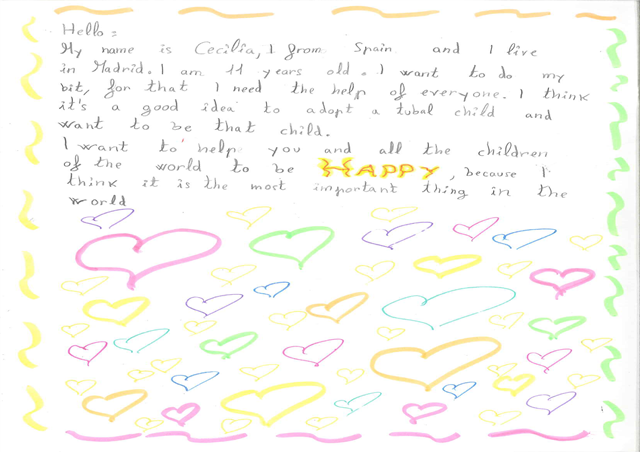 Hello:
My name is Cecilia, I from Spain and I live
in Madrid. I am 11 years old. I want to do my
bit, for that I need the help of everyone. I think
it's a good idea to adopt a tubal child and
want to be that child.
I want to help you and all the children
of the world to be HAPPY, because I
think it is the most important thing in the
world